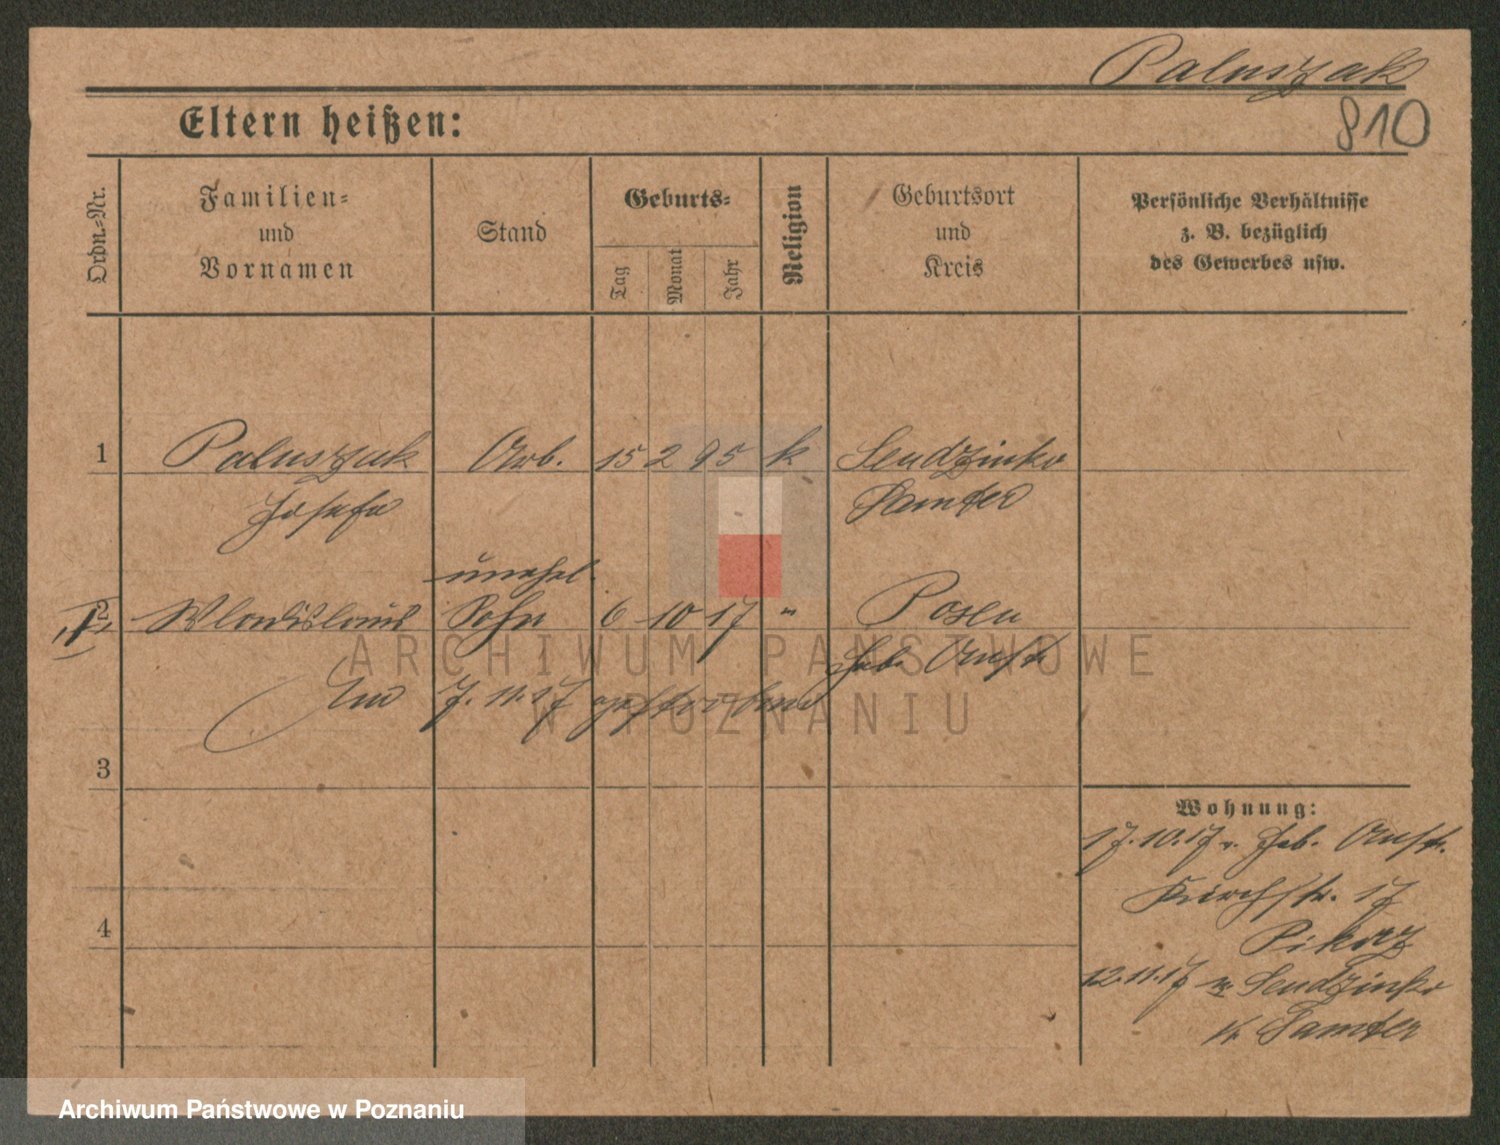 Paluszak
810
Eltern heißen:
Ordn.-Nr.
Familien-
und
Vornamen
Stand
Geburts-
Tag
Monat
Jahr
Religion
Geburtsort
und
Kreis
Persönliche Verhältnisse
z. B. bezüglich
des Gewerbes usw.
1 Paluszak Arb. 15 2 95 k Sendzinko
Josefa Samter
unehel.
2 Wladislaus Sohn 6 10 17 " Posen
Heb. Anst.
Am 7.11.17 gestorben
ARCHIWUM PAŃSTWOWE
W POZNANIU
3
4
Wohnung:
17.10.17 v. Heb. Anst.
17
12.11.17 n. Sendzinko
Kr. Samter
Archiwum Państwowe w Poznaniu